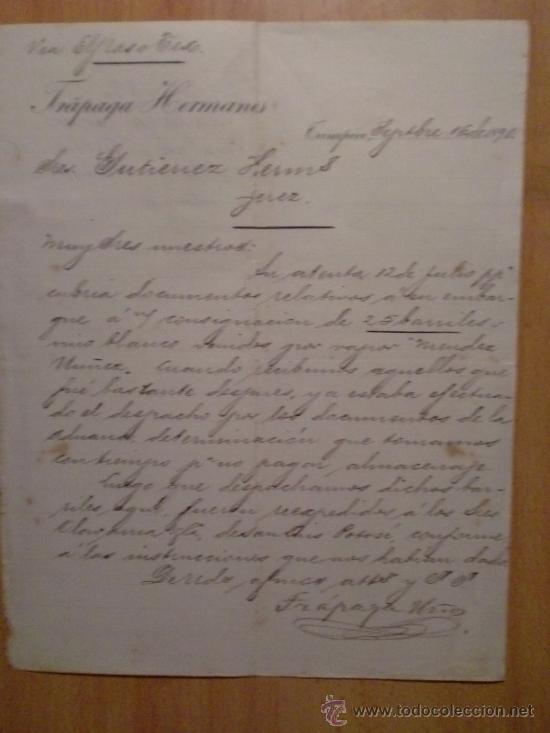 Via El Paso Tex.
Trápaga Hermanos
Tampico, Septbre 15 de 189
Sres. Gutierrez Herms
Jerez.
Muy Sres nuestros:
Su atenta 12 de Julio pp
cubria documentos relativos, a su embar-
que á y consignacion de 25 barriles
vino blanco venidos por vapor Mendez
Nuñez. Cuando recibimos aquellos que
fué bastante despues, ya estaba efectua-
do el despacho por los documentos de la
aduana, determinación que tomamos
con tiempo pa no pagar almacenaje
Luego que despachamos dichos bar-
riles aquí, fueron reexpedidos á los Sres
de San Luis Potosí, conforme
á las instrucciones que nos habian dado
De Uds, afmos, attos y
Trápaga Hnos
www.todocoleccion.net